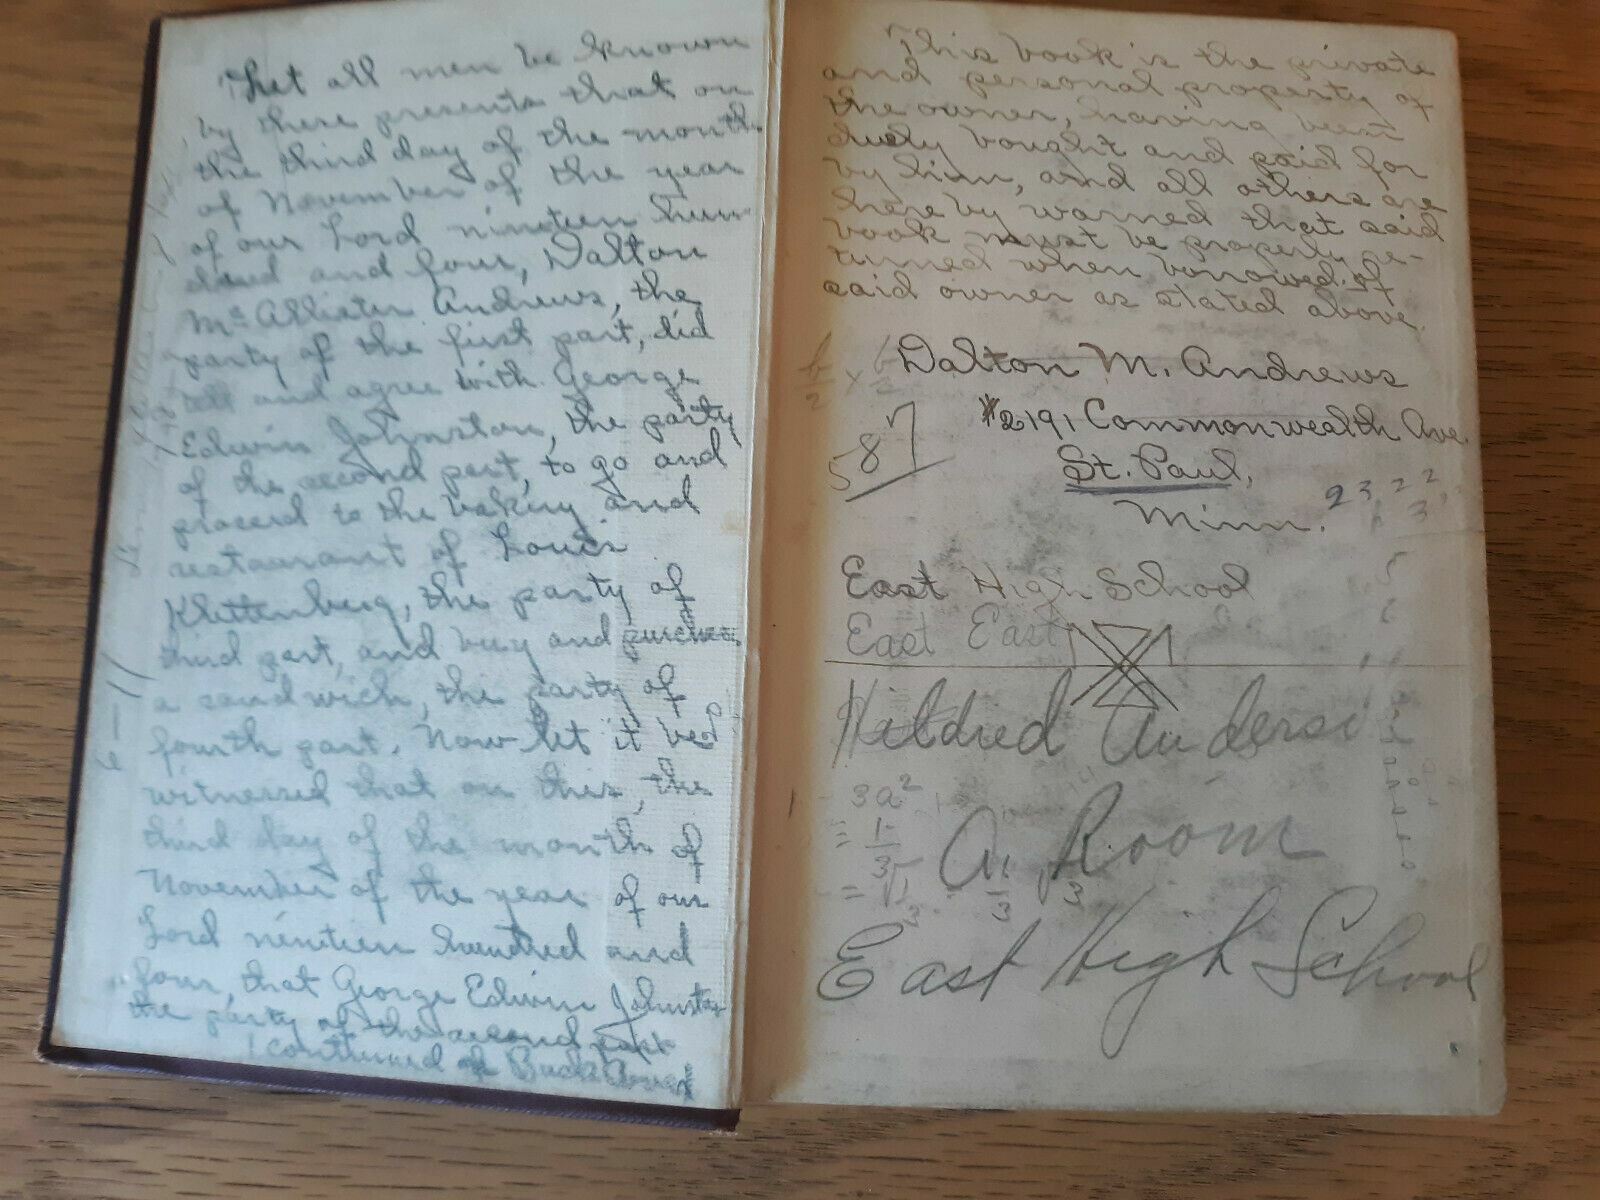 Let all men be known
by these presents that on
the third day of the month
of November of the year
of our Lord nineteen hun-
dred and four, Dalton
McAllister Andrews, the
party of the first part, did
and agree with George
Edwin Johnston, the party
of the second part, to go and
proceed to the bakery and
restaurant of Louis
Klettenberg, the party of
third part, and buy and purchase
a sandwich, the party of
fourth part. Now let it be
witnessed that on this, the
third day of the month of
November of the year of our
Lord nineteen hundred and
four, that George Edwin Johnston
the party of the second part
(continued at Back Cover)
6-11
This book is the private
and personal property of
the owner, having been
duly bought and paid for
by him, and all others are
here by warned that said
book must be properly re-
turned when borrowed of
said owner as stated above.
Dalton M. Andrews
#2191 Commonwealth Ave.
St. Paul,
Minn.
587
East High School
East East
Hildred Anders
3a²
A. Room
East High School